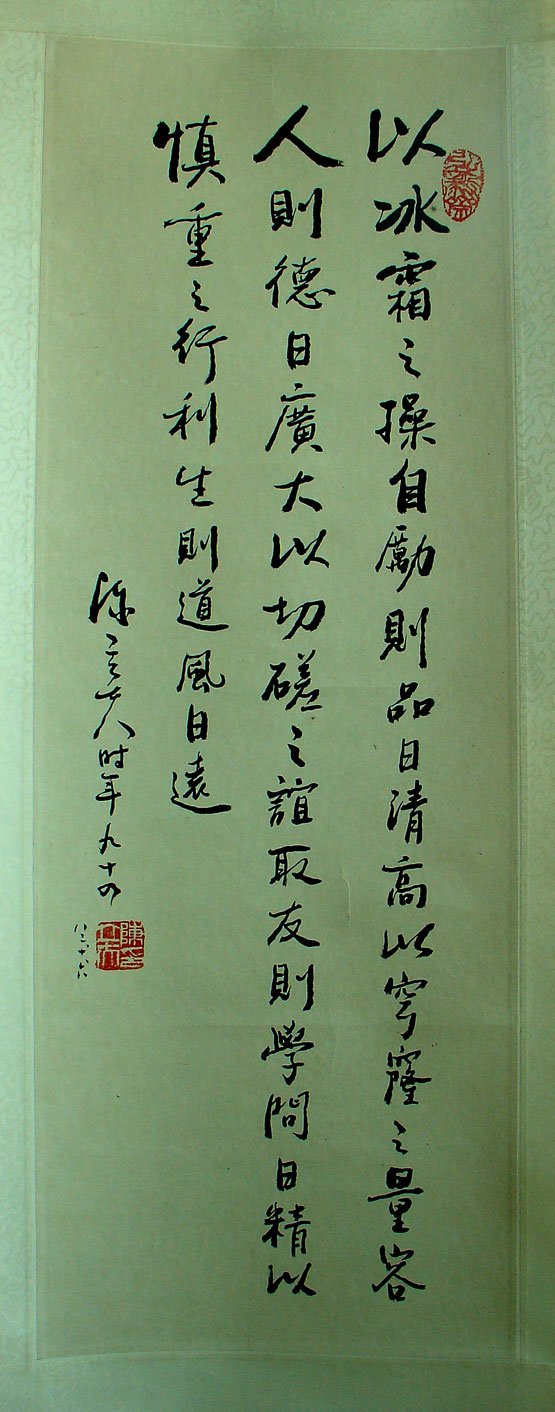 以冰霜之操自勵則品日清高以穹窿之量容
人則德日廣大以切磋之誼取友則學問日精以
慎重之行利生則道風日遠
陳立夫时年九十四
陳印立夫